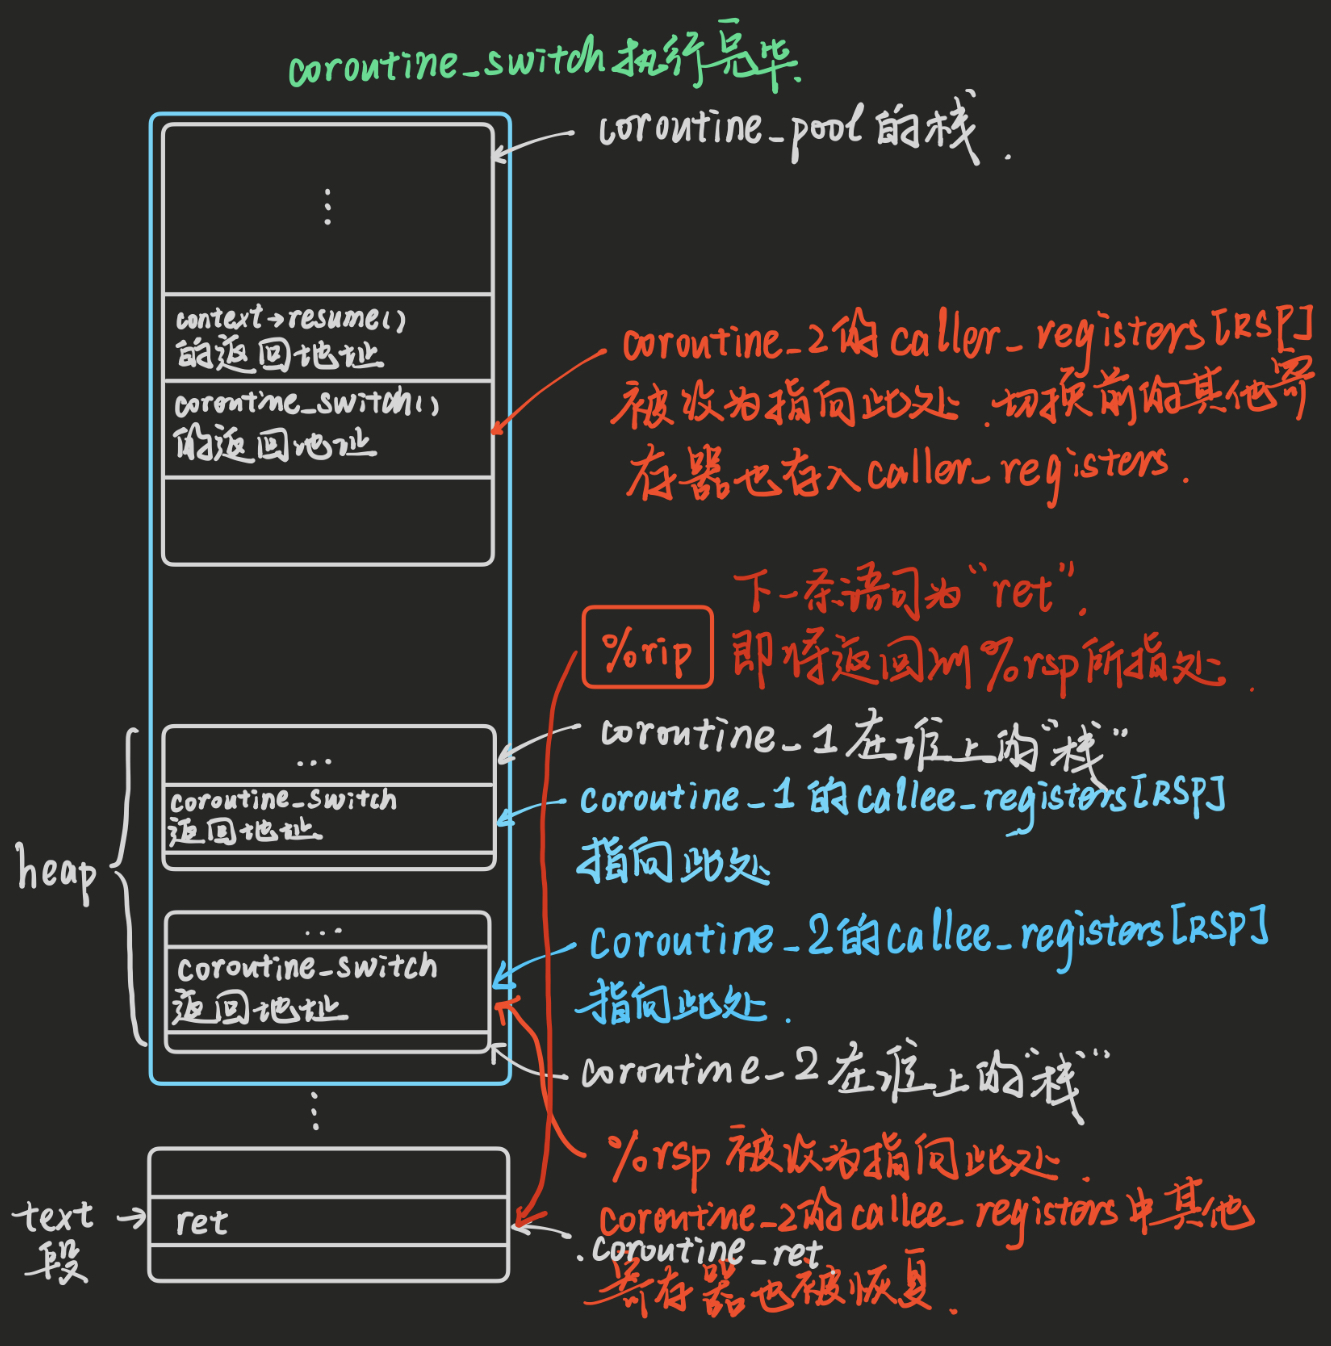 coroutine_switch执行完毕.
coroutine_pool的栈.
⋮
context→resume()
的返回地址
coroutine_switch()
的返回地址
coroutine_2的caller_registers[RSP]
被改为指向此处.切换前的其他寄
存器也存入caller_registers.
下一条语句为“ret”.
%rip
即将返回到%rsp所指处.
heap
...
coroutine_1在堆上的“栈”
coroutine_switch
返回地址
coroutine_1的callee_registers[RSP]
指向此处
...
coroutine_switch
返回地址
coroutine_2的callee_registers[RSP]
指向此处.
coroutine_2在堆上的“栈”
⋮
%rsp被改为指向此处.
coroutine_2的callee_registers中其他
寄存器也被恢复.
text
段
ret
.coroutine_ret